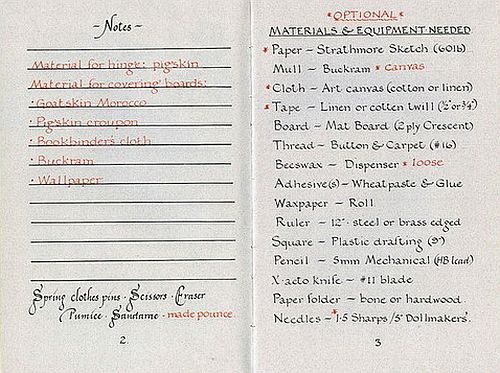 ~ Notes ~
Material for hinge: pigskin
Material for covering boards:
· Goatskin Morocco
· Pigskin croupon
· Bookbinders cloth
· Buckram
· Wallpaper
Spring clothes pins · Scissors · Eraser
Pumice · Sandarac · made pounce.
2.
*OPTIONAL*
MATERIALS & EQUIPMENT NEEDED
* Paper ~ Strathmore Sketch (60lb.)
Mull ~ Buckram * canvas
* Cloth ~ Art canvas (cotton or linen)
* Tape ~ Linen or cotten twill (½" or ¾")
Board ~ Mat Board (2 ply Crescent)
Thread ~ Button & Carpet (#16)
Beeswax ~ Dispenser * loose
Adhesive(s) ~ Wheatpaste & Glue
Waxpaper ~ Roll
Ruler ~ 12" · steel or brass edged
Square ~ Plastic drafting (9")
Pencil ~ 5mm Mechanical (HB lead)
X-acto knife ~ #11 blade
Paper folder ~ bone or hardwood.
Needles ~ *1·5 Sharps /5" Dollmakers'.
3